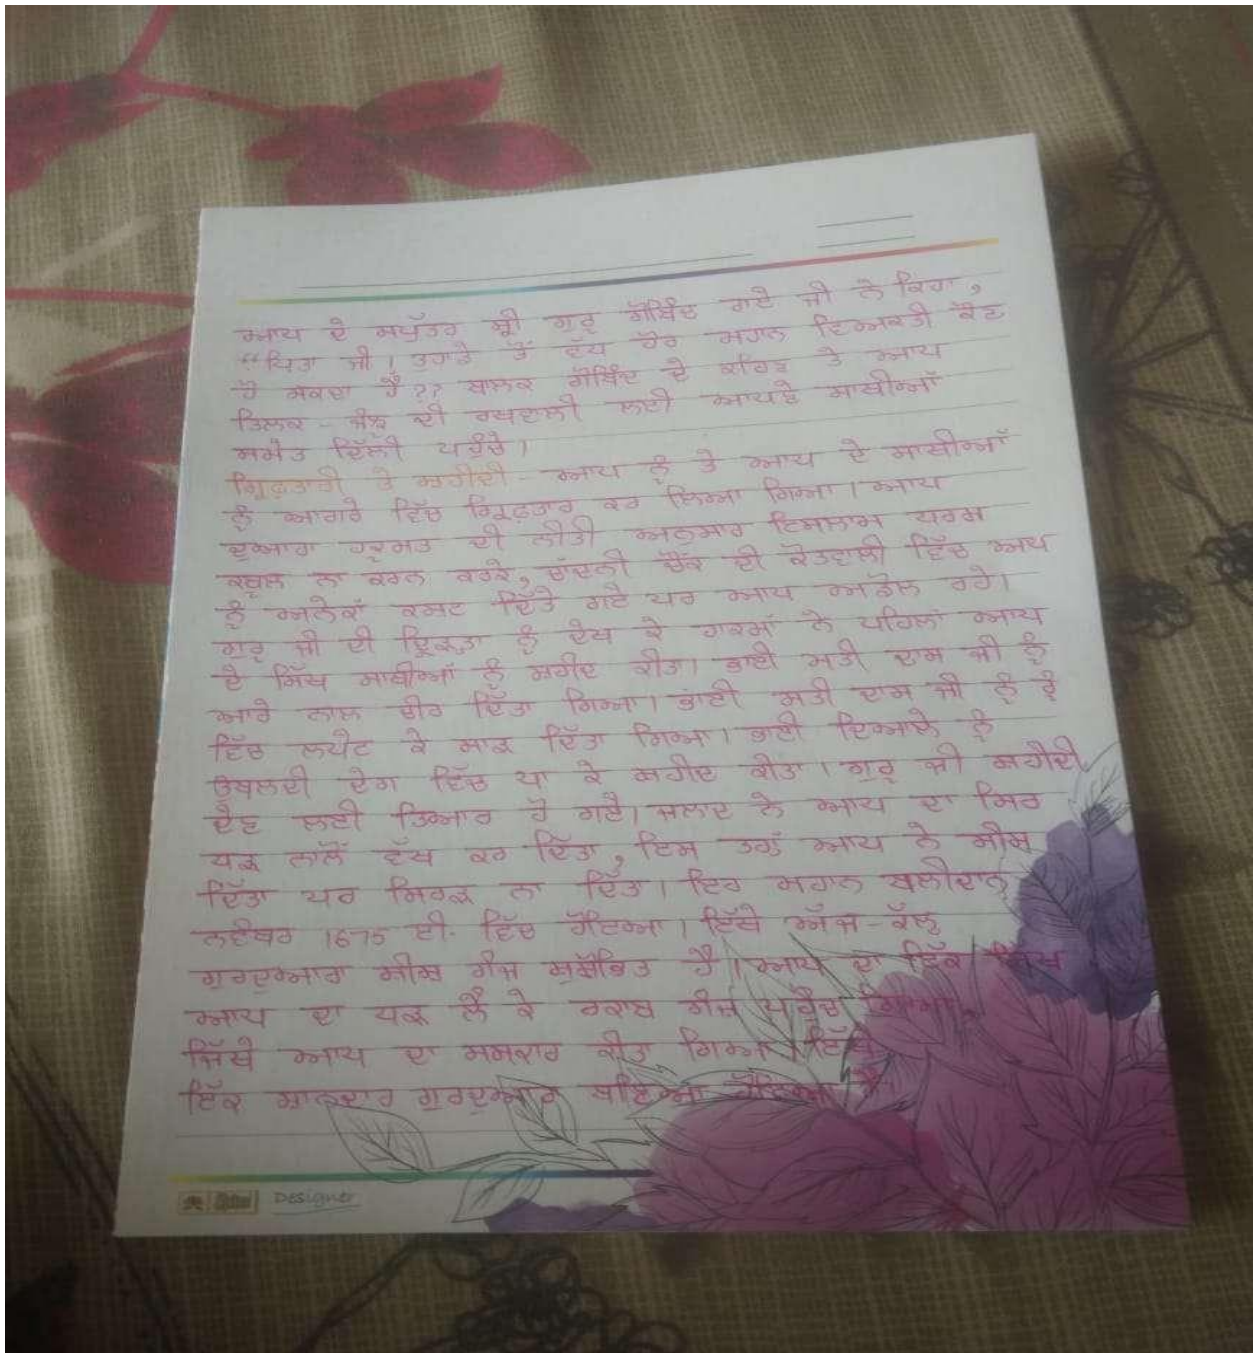 ਆਪ ਦੇ ਸਪੁੱਤਰ ਸ਼੍ਰੀ ਗੁਰੂ ਗੋਬਿੰਦ ਰਾਏ ਜੀ ਨੇ ਕਿਹਾ,
“ਪਿਤਾ ਜੀ। ਤੁਹਾਡੇ ਤੋਂ ਵੱਧ ਹੋਰ ਮਹਾਨ ਵਿਅਕਤੀ ਕੌਣ
ਹੋ ਸਕਦਾ ਹੈ?? ਬਾਲਕ ਗੋਬਿੰਦ ਦੇ ਕਹਿਣ ਤੇ ਆਪ
ਤਿਲਕ - ਜੰਝੂ ਦੀ ਰਖਵਾਲੀ ਲਈ ਆਪਣੇ ਸਾਥੀਆਂ
ਸਮੇਤ ਦਿੱਲੀ ਪਹੁੰਚੇ।
ਗ੍ਰਿਫ਼ਤਾਰੀ ਤੇ ਸ਼ਹੀਦੀ - ਆਪ ਨੂੰ ਤੇ ਆਪ ਦੇ ਸਾਥੀਆਂ
ਨੂੰ ਆਗਰੇ ਵਿੱਚ ਗ੍ਰਿਫ਼ਤਾਰ ਕਰ ਲਿਆ ਗਿਆ। ਆਪ
ਦੁਆਰਾ ਹਕੂਮਤ ਦੀ ਨੀਤੀ ਅਨੁਸਾਰ ਇਸਲਾਮ ਧਰਮ
ਕਬੂਲ ਨਾ ਕਰਨ ਕਰਕੇ, ਚਾਂਦਨੀ ਚੌਂਕ ਦੀ ਕੋਤਵਾਲੀ ਵਿੱਚ ਆਪ
ਨੂੰ ਅਨੇਕਾਂ ਕਸ਼ਟ ਦਿੱਤੇ ਗਏ ਪਰ ਆਪ ਅਡੋਲ ਰਹੇ।
ਗੁਰੂ ਜੀ ਦੀ ਦ੍ਰਿੜ੍ਹਤਾ ਨੂੰ ਦੇਖ ਕੇ ਹਾਕਮਾਂ ਨੇ ਪਹਿਲਾਂ ਆਪ
ਦੇ ਸਿੱਖ ਸਾਥੀਆਂ ਨੂੰ ਸ਼ਹੀਦ ਕੀਤਾ। ਭਾਈ ਮਤੀ ਦਾਸ ਜੀ ਨੂੰ
ਆਰੇ ਨਾਲ ਚੀਰ ਦਿੱਤਾ ਗਿਆ। ਭਾਈ ਸਤੀ ਦਾਸ ਜੀ ਨੂੰ ਰੂੰ
ਵਿੱਚ ਲਪੇਟ ਕੇ ਸਾੜ ਦਿੱਤਾ ਗਿਆ। ਭਾਈ ਦਿਆਲੇ ਨੂੰ
ਉਬਲਦੀ ਦੇਗ ਵਿੱਚ ਪਾ ਕੇ ਸ਼ਹੀਦ ਕੀਤਾ। ਗੁਰੂ ਜੀ ਸ਼ਹੀਦੀ
ਦੇਣ ਲਈ ਤਿਆਰ ਹੋ ਗਏ। ਜਲਾਦ ਨੇ ਆਪ ਦਾ ਸਿਰ
ਧੜ ਨਾਲੋਂ ਵੱਖ ਕਰ ਦਿੱਤਾ, ਇਸ ਤਰ੍ਹਾਂ ਆਪ ਨੇ ਸੀਸ
ਦਿੱਤਾ ਪਰ ਸਿਰੜ ਨਾ ਦਿੱਤਾ। ਇਹ ਮਹਾਨ ਬਲੀਦਾਨ
ਨਵੰਬਰ 1675 ਈ. ਵਿੱਚ ਹੋਇਆ। ਇੱਥੇ ਅੱਜ - ਕੱਲ੍ਹ
ਗੁਰਦੁਆਰਾ ਸੀਸ ਗੰਜ ਸੁਸ਼ੋਭਿਤ ਹੈ। ਆਪ ਦਾ ਇੱਕ ਸਿੱਖ
ਆਪ ਦਾ ਧੜ ਲੈ ਕੇ ਰਕਾਬ ਗੰਜ ਪਹੁੰਚ ਗਿਆ,
ਜਿੱਥੇ ਆਪ ਦਾ ਸਸਕਾਰ ਕੀਤਾ ਗਿਆ। ਇੱਥੇ
ਇੱਕ ਸ਼ਾਨਦਾਰ ਗੁਰਦੁਆਰਾ ਬਣਿਆ ਹੋਇਆ ਹੈ
Designer